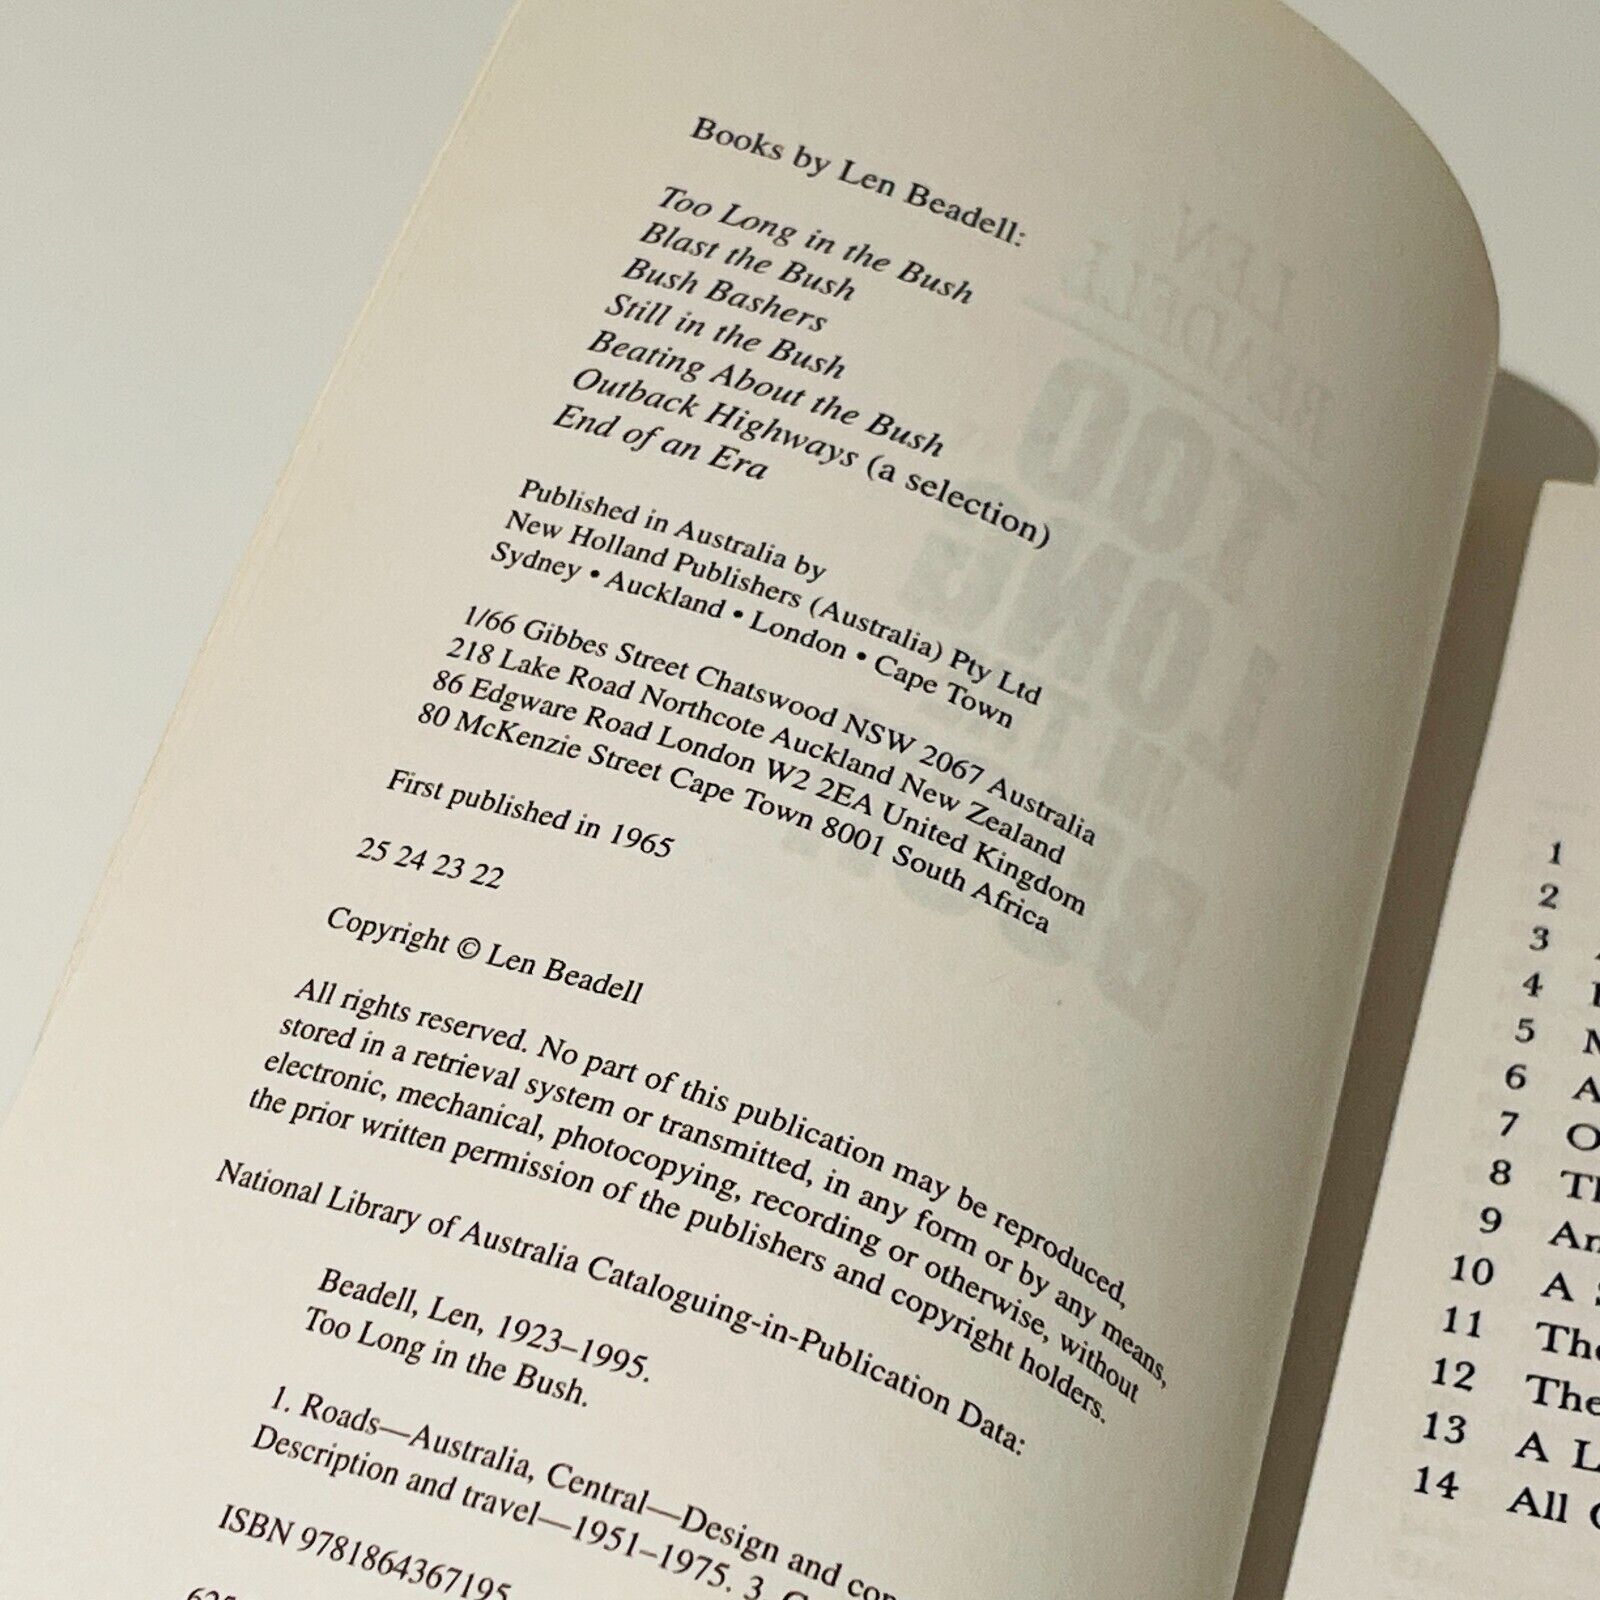 Books by Len Beadell:
Too Long in the Bush
Blast the Bush
Bush Bashers
Still in the Bush
Beating About the Bush
Outback Highways (a selection)
End of an Era
Published in Australia by
New Holland Publishers (Australia) Pty Ltd
Sydney • Auckland • London • Cape Town
1/66 Gibbes Street Chatswood NSW 2067 Australia
218 Lake Road Northcote Auckland New Zealand
86 Edgware Road London W2 2EA United Kingdom
80 McKenzie Street Cape Town 8001 South Africa
First published in 1965
25 24 23 22
Copyright © Len Beadell
All rights reserved. No part of this publication may be reproduced,
stored in a retrieval system or transmitted, in any form or by any means,
electronic, mechanical, photocopying, recording or otherwise, without
the prior written permission of the publishers and copyright holders.
National Library of Australia Cataloguing-in-Publication Data:
Beadell, Len, 1923–1995.
Too Long in the Bush.
1. Roads—Australia, Central—Design and
Description and travel—1951–1975. 3.
ISBN 9781864367195
1
2
3
4
5
6
7
8
9
10 A
11
12
13 A
14 All